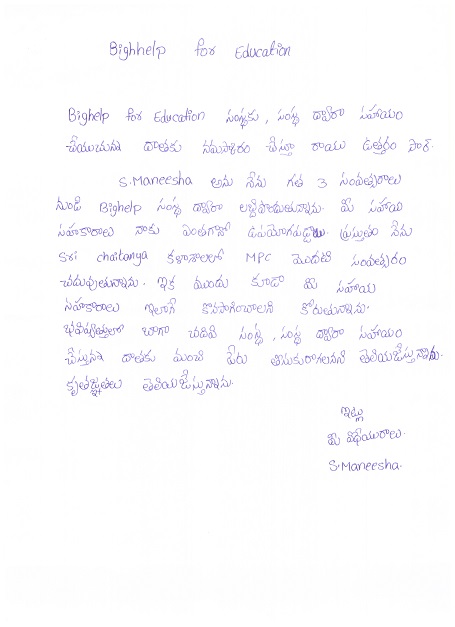 Bighhelp for Education
Bighelp for Education సంస్థకు, సంస్థ ద్వారా సహాయం
చేయుచున్న దాతకు నమస్కారం చేస్తూ రాయు ఉత్తరం సార్.
S.Maneesha అను నేను గత 3 సంవత్సరాలు
నుండి Bighelp సంస్థ ద్వారా లబ్దిపొందుతున్నాను. మీ సహాయ
సహకారాలు నాకు ఎంతగానో ఉపయోగపడ్డాయి. ప్రస్తుతం నేను
Sri chaitanya కళాశాలలో MPC మొదటి సంవత్సరం
చదువుతున్నాను. ఇక ముందు కూడా మీ సహాయ
సహకారాలు ఇలాగే కొనసాగించాలని కోరుతున్నాను.
భవిష్యత్తులో బాగా చదివి సంస్థ, సంస్థ ద్వారా సహాయం
చేస్తున్న దాతకు మంచి పేరు తీసుకురాగలనని తెలియజేస్తున్నాను.
కృతజ్ఞతలు తెలియజేస్తున్నాను.
ఇట్లు
మీ విధేయురాలు.
S.Maneesha.